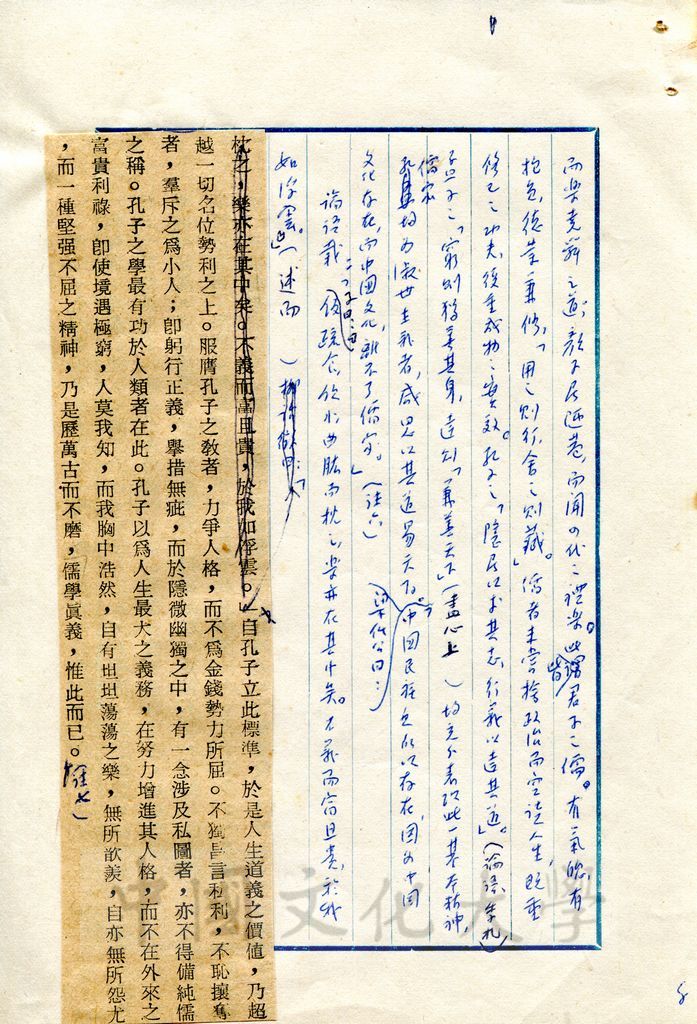 而樂堯舜之道，顏子居陋巷，而聞四代之禮樂。此皆君子之儒。有氣魄，有
抱負，德業兼修，「用之則行，舍之則藏」。儒者未嘗捨政治而空談人生，既重
修己之功夫，復重成物之實效。孔子之「隱居以求其志，行義以達其道」。（論語、季氏）
孟子之「窮則獨善其身，達則兼善天下」（盡心上　）均充分表現此一基本精神，
儒家均為淑世主義者，咸思以其道易天下。梁任公曰：「中國民族之所以存在，因為中國
文化存在，而中國文化，離不了儒家。」（註六）
論語載子曰：「飯疏食、飲水，曲肱而枕之，樂亦在其中矣。不義而富且貴，於我
如浮雲。」（述而　）柳詒徵曰：「
枕之，樂亦在其中矣。不義而富且貴，於我如俘雲。」自孔子立此標準，於是人生道義之價值，乃超
越一切名位勢利之上。服膺孔子之敎者，力爭人格，而不爲金錢勢力所屈。不獨昌言私利，不恥攘奪
者，羣斥之爲小人；卽躬行正義，擧措無疵，而於隱微幽獨之中，有一念涉及私圖者，亦不得備純儒
之稱。孔子之學最有功於人類者在此。孔子以爲人生最大之義務，在努力增進其人格，而不在外來之
富貴利祿，卽使境遇極窮，人莫我知，而我胸中浩然，自有坦坦蕩蕩之樂，無所歆羨，自亦無所怨尤
，而一種堅强不屈之精神，乃是歷萬古而不磨，儒學眞義，惟此而已。（註七）
中國文化大學
8